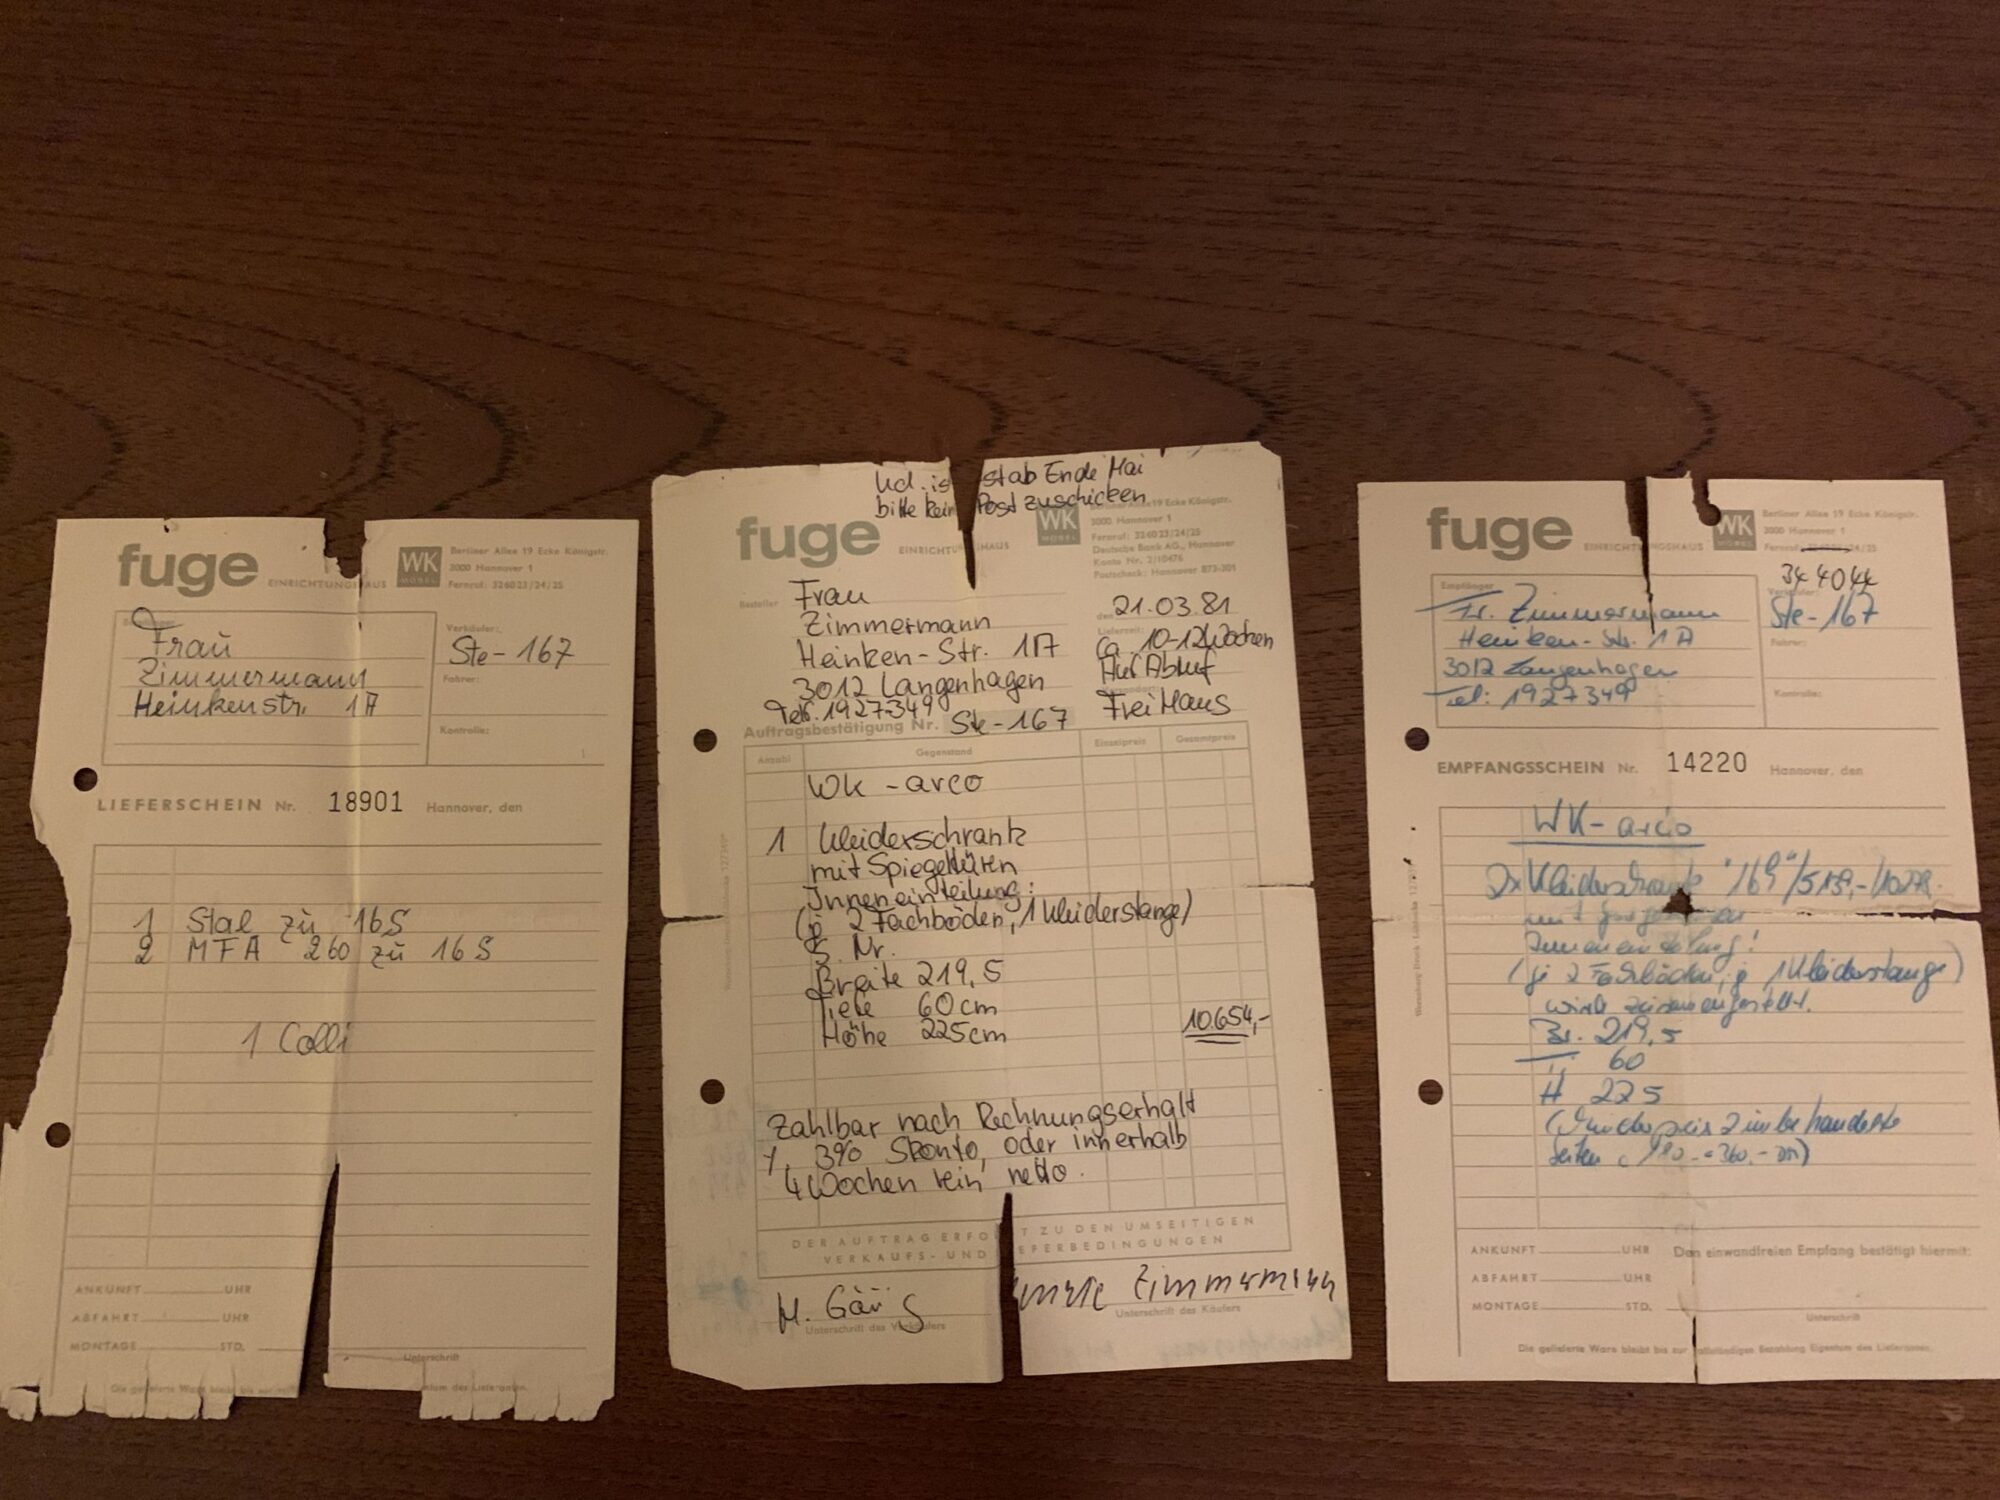 fuge
EINRICHTUNGSHAUS
WK
MÖBEL
Berliner Allee 19 Ecke Königstr.
3000 Hannover 1
Fernruf: 32 60 23/24/25
Frau
Zimmermann
Heinkenstr. 1A
Verkäufer:
Ste-167
Fahrer:
Kontrolle:
LIEFERSCHEIN Nr. 18901 Hannover, den
1 Stal zu 16S
2 MFA 260 zu 16S
1 Colli
ANKUNFT UHR
ABFAHRT UHR
MONTAGE STD.
Unterschrift
Kd. ist ab Ende Mai
bitte kein Post zuschicken
fuge
EINRICHTUNGSHAUS
WK
MÖBEL
Berliner Allee 19 Ecke Königstr.
3000 Hannover 1
Fernruf: 32 60 23/24/25
Deutsche Bank AG., Hannover
Konto Nr. 2/10476
Postscheck: Hannover 873-301
Besteller
Frau
Zimmermann
Heinken-Str. 1A
3012 Langenhagen
Tel. 1927349
den 21.03.81
Lieferzeit:
Ca. 10-12 Wochen
Auf Abruf
Frei Haus
Auftragsbestätigung Nr. Ste-167
Anzahl Gegenstand Einzelpreis Gesamtpreis
WK-arco
1 Kleiderschrank
mit Spiegeltüren
Inneneinteilung:
(je 2 Fachböden, 1 Kleiderstange)
S. Nr.
Breite 219,5
Tiefe 60cm
Höhe 225cm
10.654,-
Zahlbar nach Rechnungserhalt
3% Skonto, oder innerhalb
4 Wochen rein netto.
DER AUFTRAG ERFOLGT ZU DEN UMSEITIGEN
VERKAUFS- UND LIEFERBEDINGUNGEN
Zimmermann
Unterschrift des Verkäufers
Unterschrift des Käufers
fuge
EINRICHTUNGSHAUS
WK
MÖBEL
Berliner Allee 19 Ecke Königstr.
3000 Hannover 1
Fernruf: 32 60 23/24/25
344044
Empfänger
Fr. Zimmermann
Heinken-Str. 1A
3012 Langenhagen
Tel: 1927349
Verkäufer:
Ste-167
Fahrer:
Kontrolle:
EMPFANGSSCHEIN Nr. 14220 Hannover, den
WK-arco
2x Kleiderschrank
Inneneinteilung!
(je 2 Fachböden, je 1 Kleiderstange)
wird zusammengestellt.
Br. 219,5
T 60
H 225
ANKUNFT UHR
ABFAHRT UHR
MONTAGE STD.
Den einwandfreien Empfang bestätigt hiermit:
Unterschrift
Die gelieferte Ware bleibt bis zur vollständigen Bezahlung Eigentum des Lieferanten.